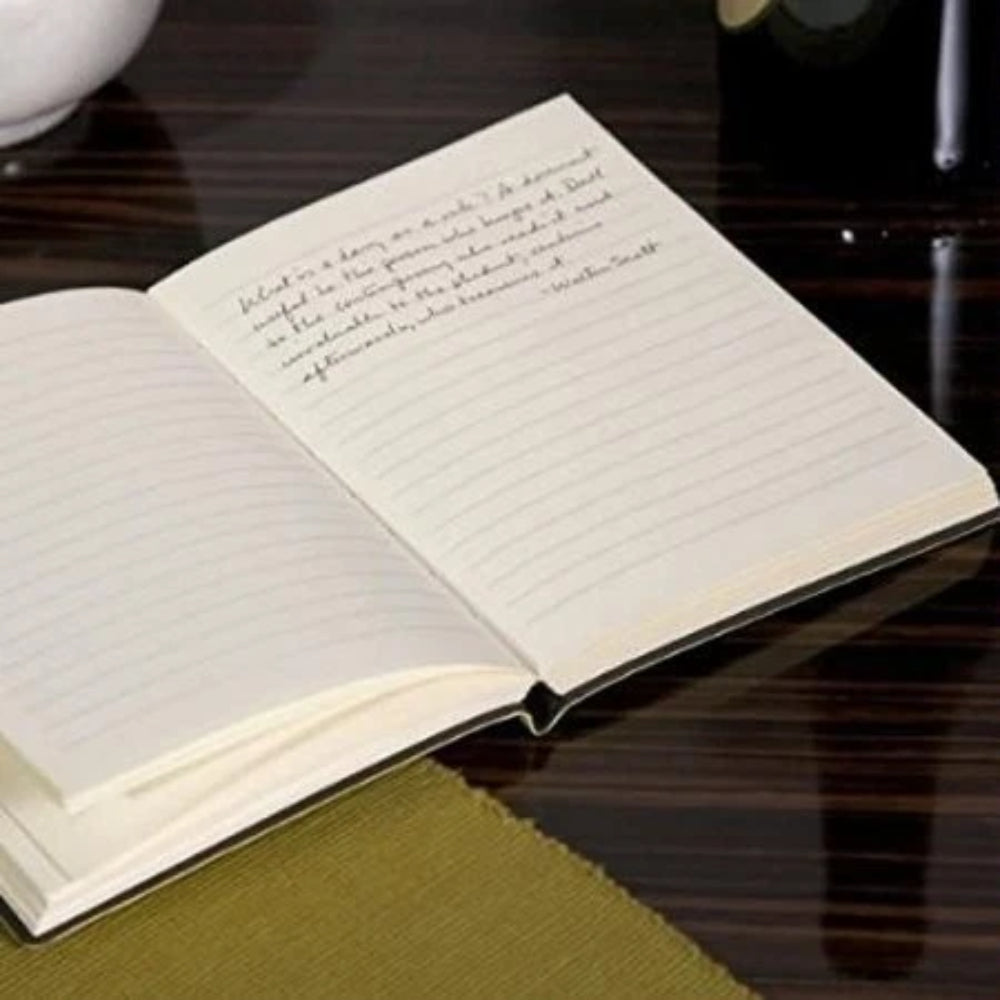 What is a diary as a rule? A document
useful to the person who keeps it. Dull
to the contemporary who reads it and
invaluable to the student, centuries
afterwards, who treasures it
- Walter Scott